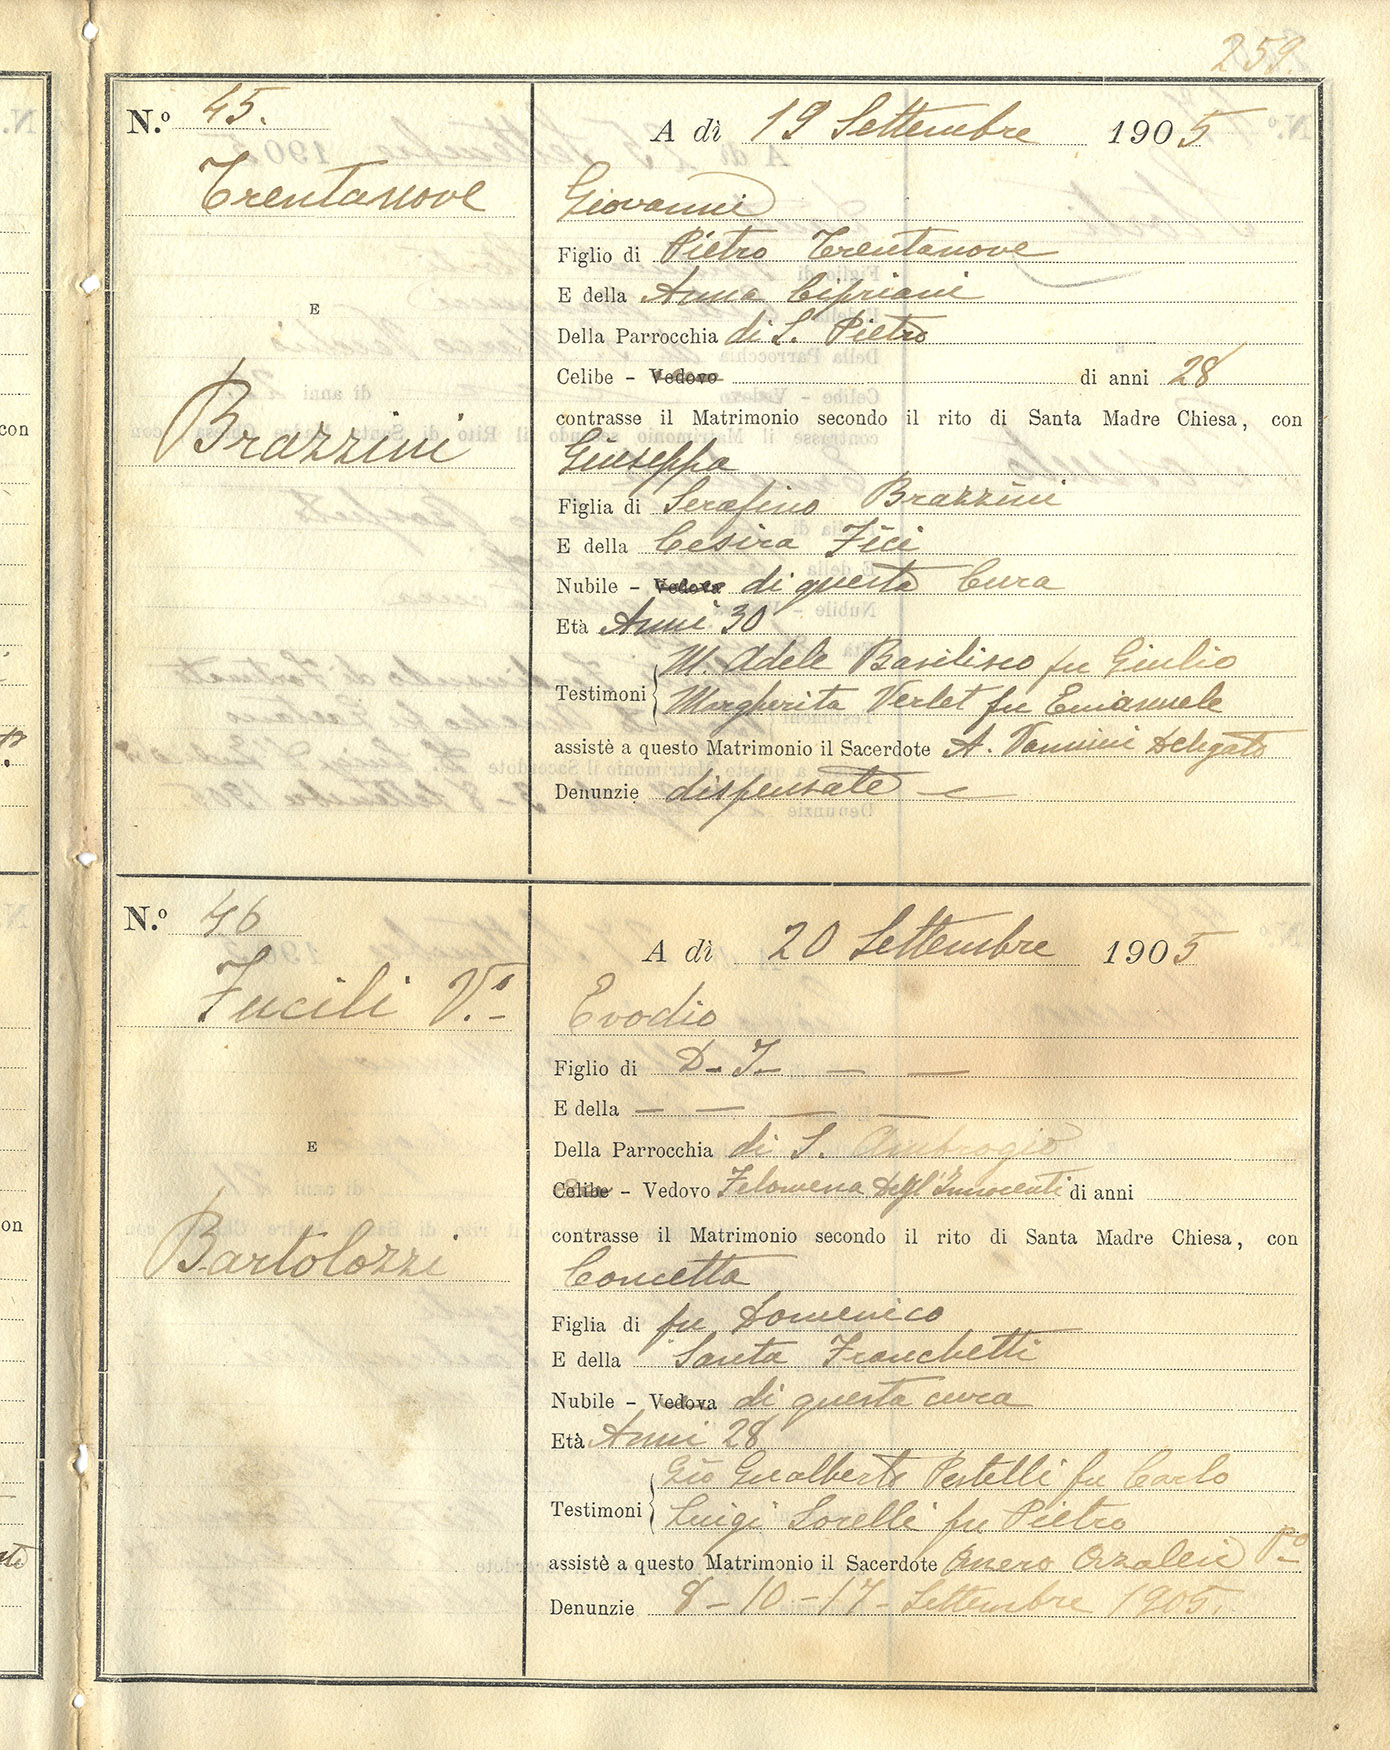 259
N.º 45.
Trentanove
E
Brazzini
A dì 19 Settembre 1905
Giovanni
Figlio di Pietro Trentanove
E della Anna Cipriani
Della Parrocchia di S. Pietro
Celibe - Vedovo di anni 28
contrasse il Matrimonio secondo il rito di Santa Madre Chiesa, con
Giuseppa
Figlia di Serafino Brazzini
E della Cesira Fici
Nubile - Vedova di questa Cura
Età Anni 30
M. Adele Basilisco fu Giulio
Testimoni
Margherita Verlet fu Emanuele
assistè a questo Matrimonio il Sacerdote A. Vannini Delegato
Denunzie dispensate
N.º 46
Fucili V.º
E
Bartolozzi
A dì 20 Settembre 1905
Evodio
Figlio di D. I. — —
E della — — — —
Della Parrocchia di S. Ambrogio
Celibe - Vedovo Filomena Degl'Innocenti di anni
contrasse il Matrimonio secondo il rito di Santa Madre Chiesa, con
Concetta
Figlia di fu Domenico
E della Santa Franchetti
Nubile - Vedova di questa cura
Età Anni 28
Gio Gualberto Pestelli fu Carlo
Testimoni
Luigi Sorelli fu Pietro
assistè a questo Matrimonio il Sacerdote
Denunzie 8 - 10 - 17 - Settembre 1905.
con
on